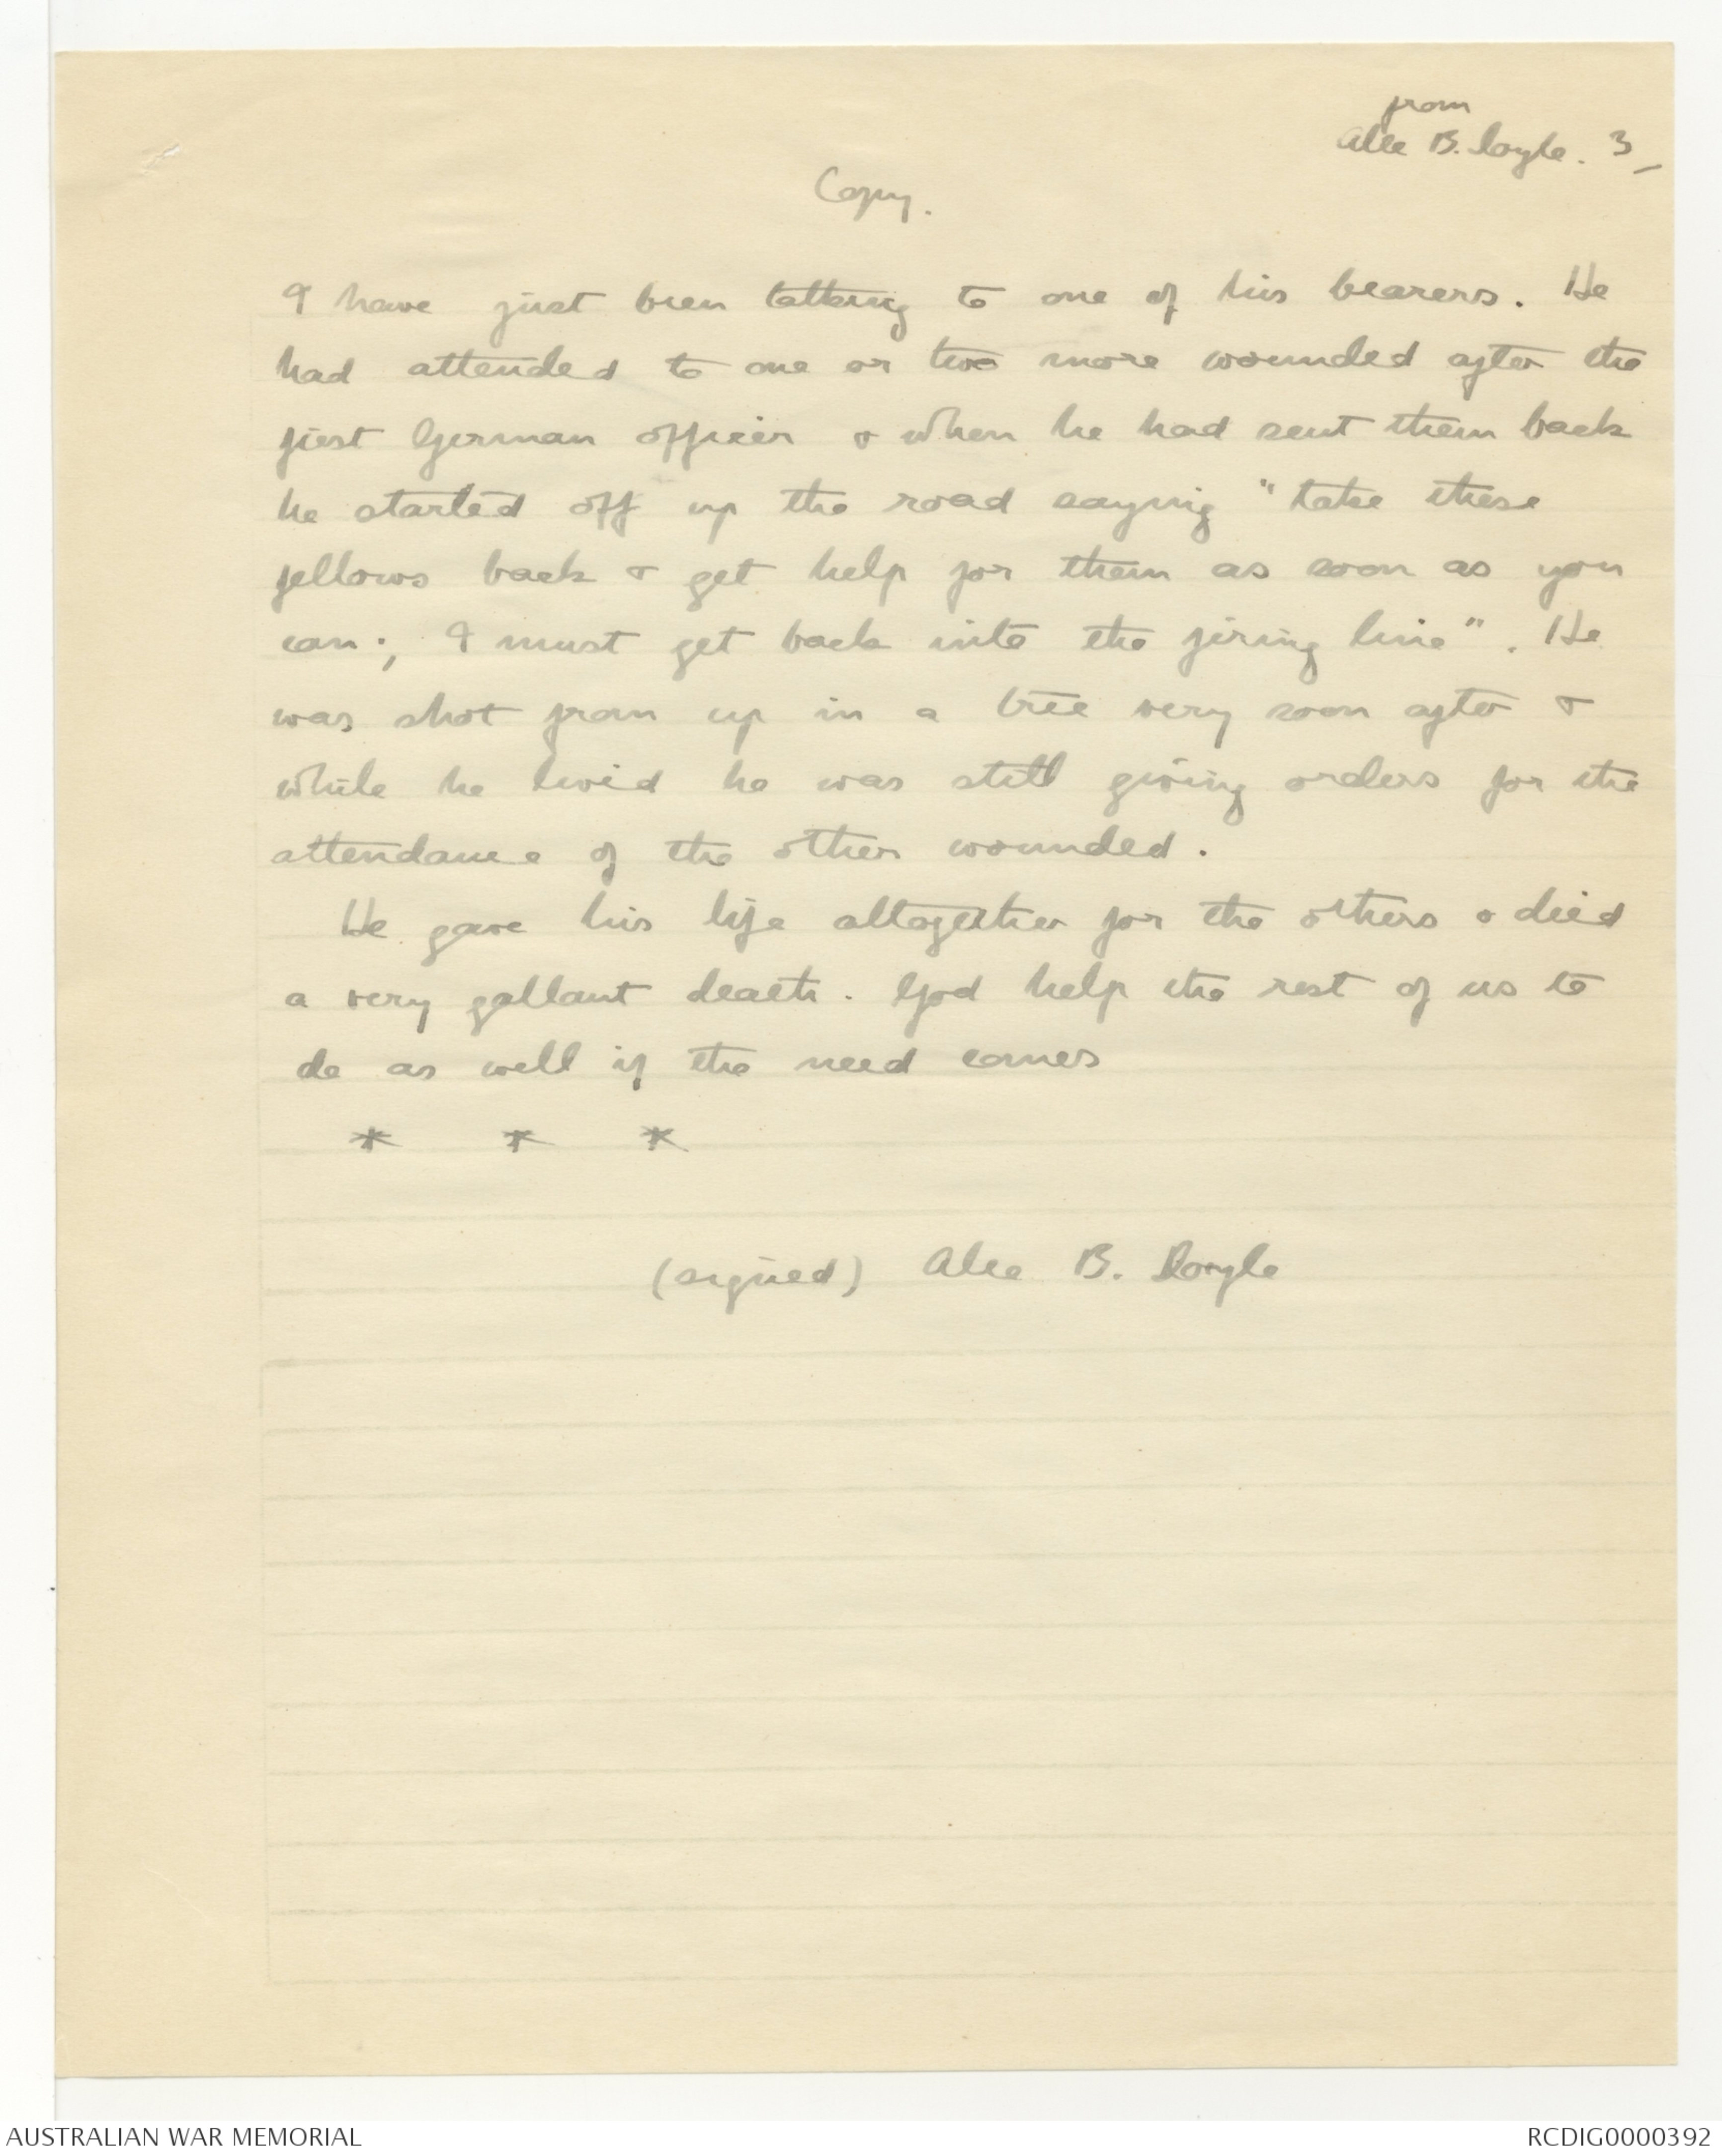 from
Alec B. Doyle. 3
Copy.
I have just been talking to one of his bearers. He
had attended to one or two more wounded after the
first German officer & when he had sent them back
he started off up the road saying "take these
fellows back & get help for them as soon as you
can; I must get back into the firing line". He
was shot from up in a tree very soon after &
while he lived he was still giving orders for the
attendance of the other wounded.
He gave his life altogether for the others & died
a very gallant death. God help the rest of us to
do as well if the need comes
* * *
(signed) Alec B. Doyle
AUSTRALIAN WAR MEMORIAL
RCDIG0000392